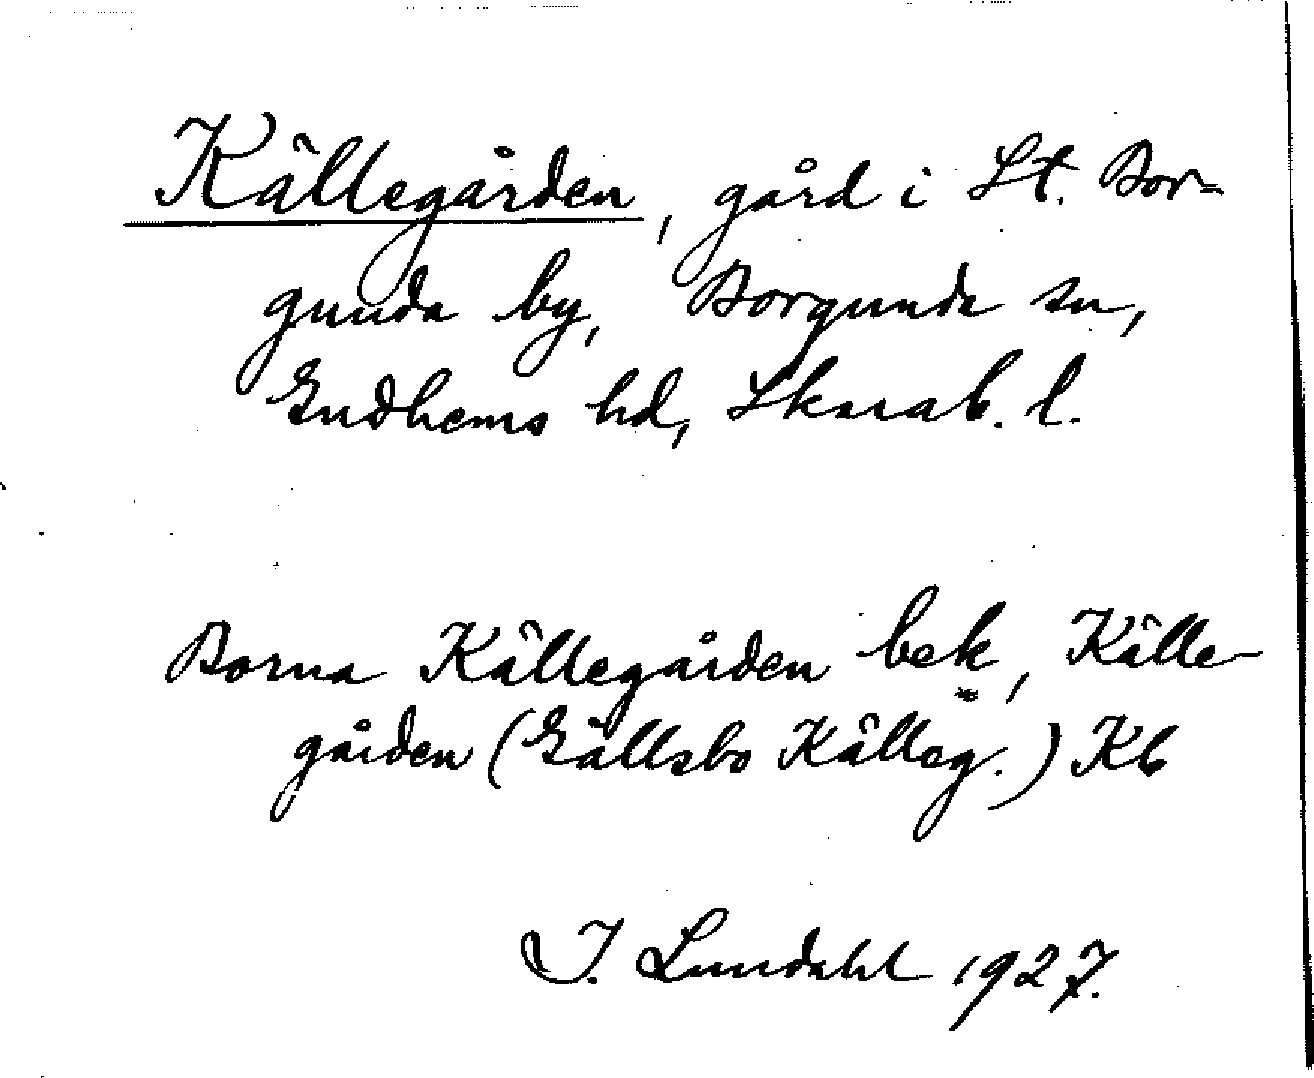 Källegården, gård i St. Bor-
gunda by, Borgunda sn,
Gudhems hd, Skarab. l.
Borna Källegården bek, Källe-
gården (Gällsbo Källeg.) Kb
I. Lundahl 1927.